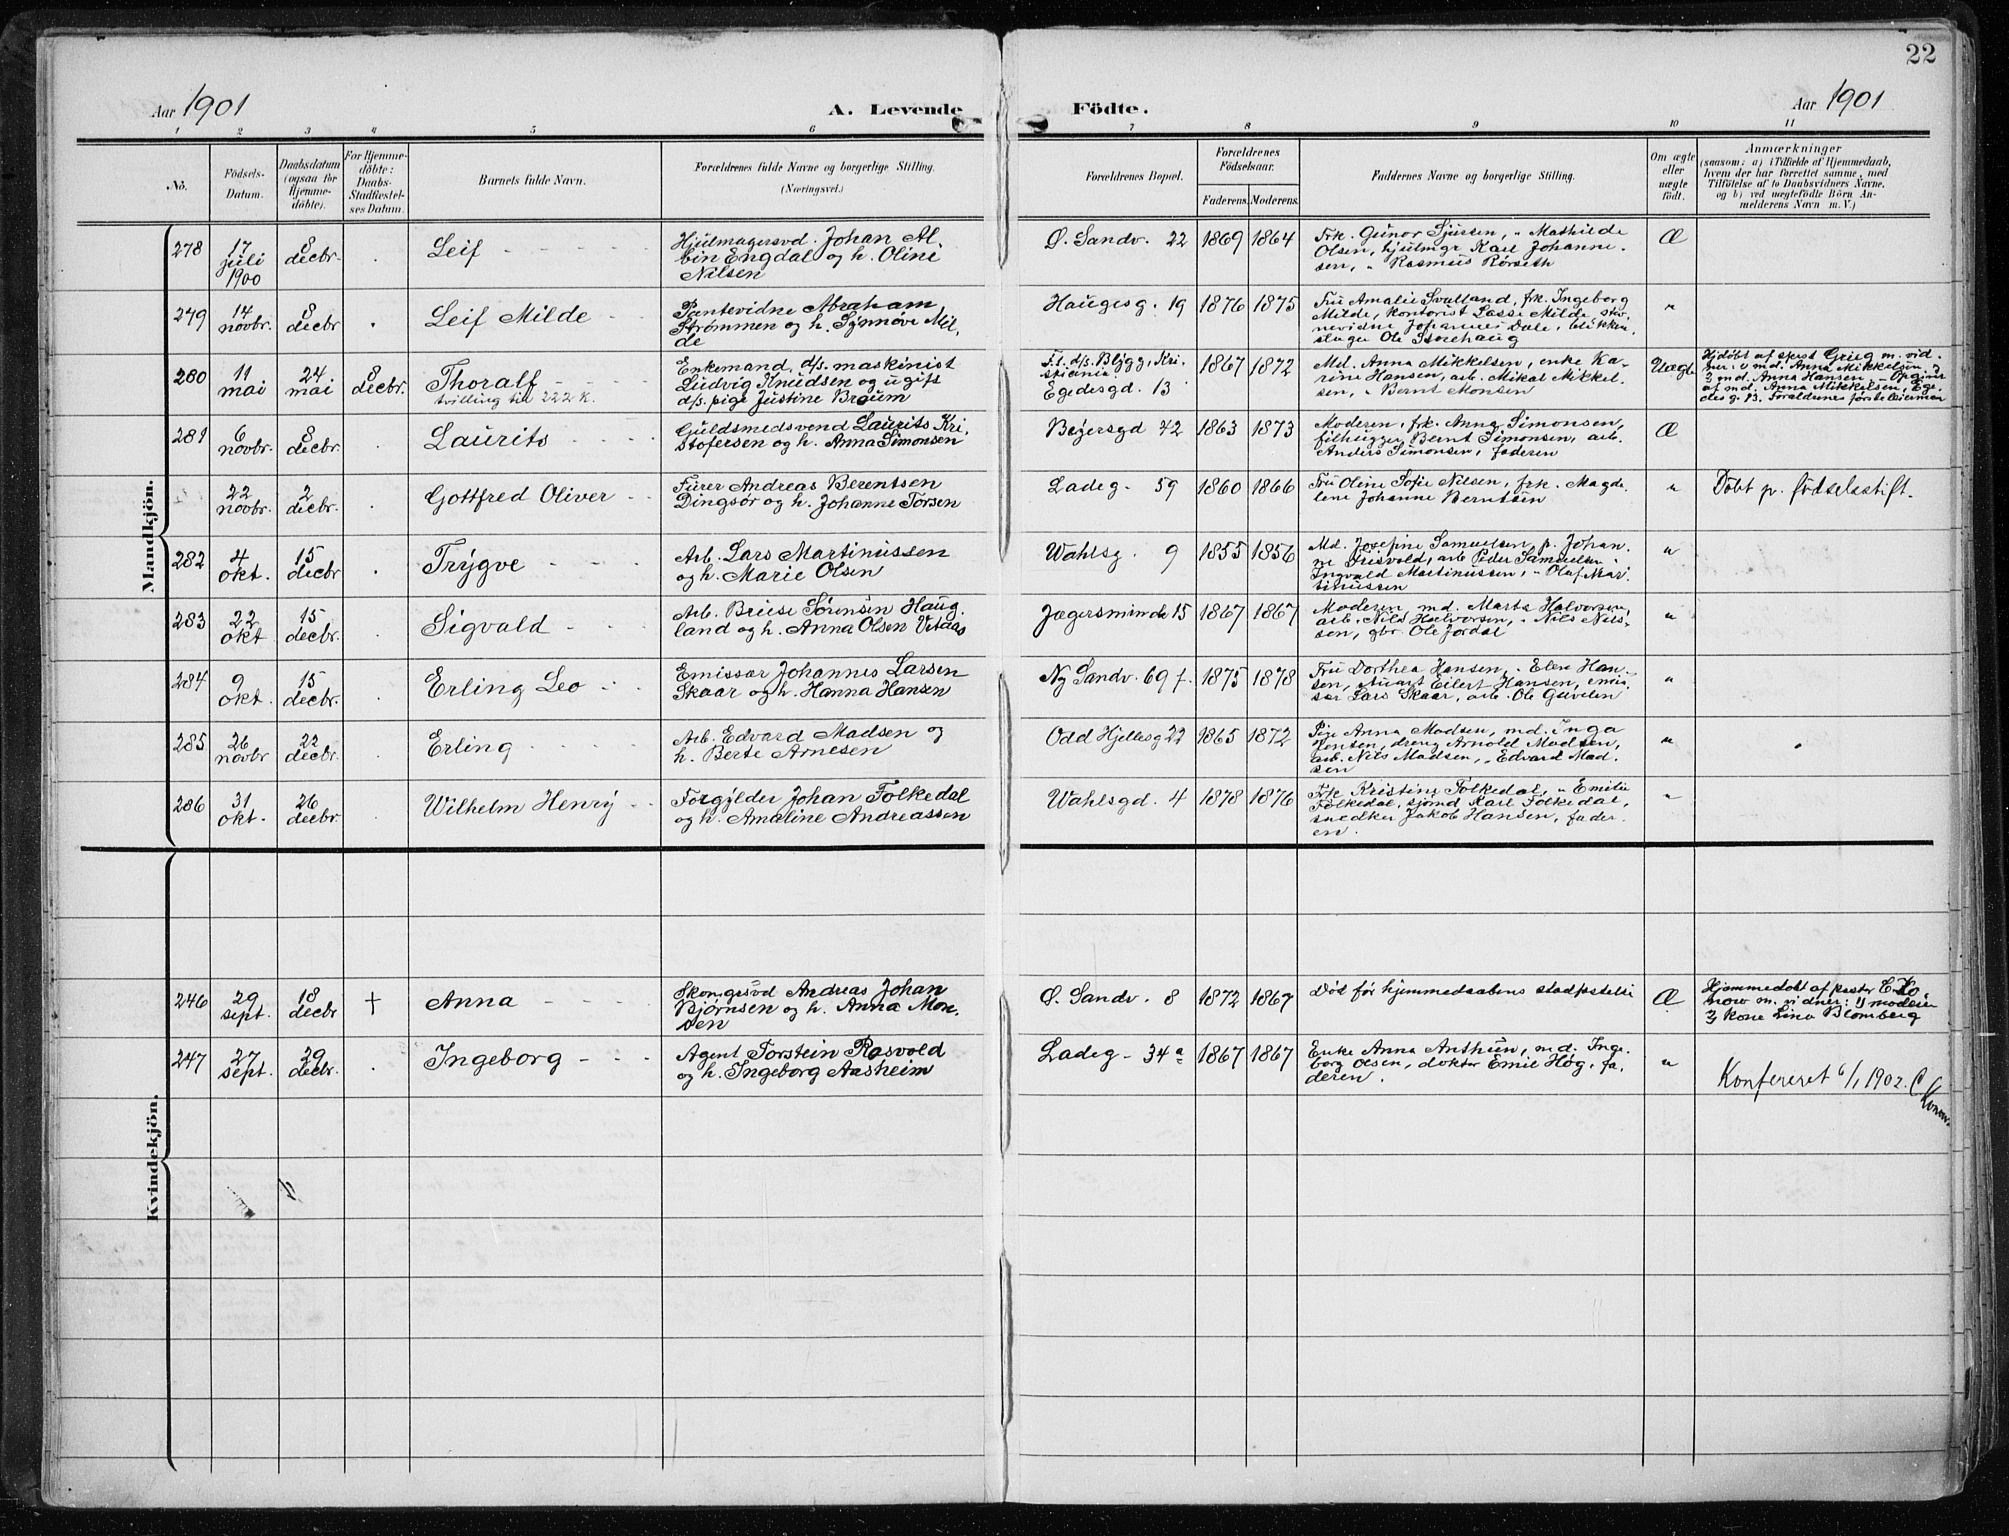 22
Aar 1901
A. Levende
Födte.
Aar 1901
1 2 3 4 5 6 7 8 9 10 11
No.
Födsels-
Datum.
Daabsdatum
(ogsaa for
Hjemme-
döbte).
For Hjemme-
döbte:
Daabs-
Stadfæstel-
ses Datum.
Barnets fulde Navn.
Forældrenes fulde Navne og borgerlige Stilling.
(Næringsvei.)
Forældrenes Bopæl.
Forældrenes
Födselsaar.
Faderens. Moderens.
Faddernes Navne og borgerlige Stilling.
Om ægte
eller
uægte
födt.
Anmærkninger
(saasom: a) i Tilfælde af Hjemmedaab,
hvem der har forrettet samme, med
Tilföielse af to Daabsvidners Navne,
og b) ved uægtefödte Börn An-
melderens Navn m. V.)
Mandkjön.
278
17
juli
1900
8
decbr.
Leif
Hjulmagersvd. Johan Al-
bin Engdal og h. Oline
Nilsen
Ø. Sandv. 22
1869 1864
Frk. Gunor Sjursen, " Mathilde
Olsen, hjulmgr Karl Johanne-
sen, " Rasmus Rørseth
Æ
279
14
novbr.
8
decbr
Leif Milde
Pantevidne Abraham
Strømmen og h. Synnøve Mil-
de
Haugesg. 19
1876 1875
Fru Amalie Svulland, frk. Ingeborg
Milde, kontorist Lasse Milde, stør-
nevidne Johannes Dale, blikken-
slager Ole Storehaug
"
280
11
mai
24
mai
8
decbr.
Thoralf
tvilling til 222 K.
Enkemand, d/s. maskinist
Ludvig Knudsen og ugift
d/s. pige Justine Braum
F.t. d/s. Bygg, Kri-
stiania.
Egedesgd. 13
1867 1872
Md. Anna Mikkelsen, enke Ka-
rine Hansen, arb. Mikal Mikkel-
sen, " Bernt Monsen
Uægte
Hjdøbt af sprst Grieg m. vid-
ner: 1) md. Anna Mikkelsen,
2) md. Anna Hansen - Opgiver
af md. Anna Mikkelsen, Ege-
des g. 13. Forældrenes første leiermaal
281
6
novbr.
8
decbr.
Laurits
Guldsmedsvend Laurits Kri-
stofersen og h. Anna Simonsen
Bøjersgd 42
1863 1873
Moderen, frk. Anna Simonsen,
filhugger Bernt Simonsen, arb.
Anders Simonsen, faderen
Æ
22
novbr.
2
decbr.
Gottfred Oliver
Fürer Andreas Berentsen
Dingsør og h. Johanne Torsen
Ladeg. 59
1860 1866
Fru Oline Sofie Nilsen, frk. Magde-
lene Johanne Berntsen
"
Døbt p. fødselsstift.
282
4
okt.
15
decbr
Trygve
Arb. Lars Martinussen
og h. Marie Olsen
Wahlsg. 9
1855 1856
Md. Josefine Samuelsen, p. Johan-
ne Drisvold, arb Peder Samuelsen
Ingvald Martinussen, " Olaf Mar-
tinussen
"
283
22
okt
15
decbr.
Sigvald
Arb. Briese Sørensen Haug-
land og h. Anna Olsen Utaas
Jægersminde 15
1867 1867
Moderen, md. Marta Halvorsen,
arb. Nils Halvorsen, " Nils Nils-
sen, gbr. Ole Jordal
"
284
9
okt.
15
decbr.
Erling Leo
Emissær Johannes Larsen
Skaar og h. Hanna Hansen
Ny Sandv. 69 f.
1875 1878
Fru Dorthea Hansen, " Elen Han-
sen, stuart Eilert Hansen, emis-
sær Lars Skaar, arb. Ole Gavelen
"
285
26
novbr
22
decbr.
Erling
Arb. Edvard Madsen og
h. Berte Arnesen
Odd Hjeltesg 22
1865 1872
Pige Anna Madsen, md. Inga
Jensen, dreng Arnold Madsen,
arb. Nils Madsen, " Edvard Mad-
sen
"
286
31
okt.
26
decbr.
Wilhelm Henry
Forgylder Johan Folkedal
og h. Amaline Andreassen
Wahlsgd. 4
1878 1876
Frk Kristine Folkedal, " Emilie
Folkedal, sjømd Karl Folkedal,
snedker Jakob Hansen, fader-
en.
"
Kvindekjön.
246
29
sept.
18
decbr
†
Anna
Skomgrsvd Andreas Johan
Bjørnsen og h. Anna Mon-
sen
Ø. Sandv. 8
1872 1867
Død før hjemmedaabens stadfæstelse
Æ
Hjemmedøbt af pastor E. Ko
now m. vidner: 1) moderen
2) kone Lina Blomberg
247
27
sept.
29
decbr.
Ingeborg
Agent Torstein Rosvold
og h. Ingeborg Aasheim
Ladeg. 34 a
1867 1867
Enke Anna Anthun, md. Inge-
borg Olsen, doktor Emil Høg, fa-
deren.
"
Konfereret 6/1 1902. C. Konow.